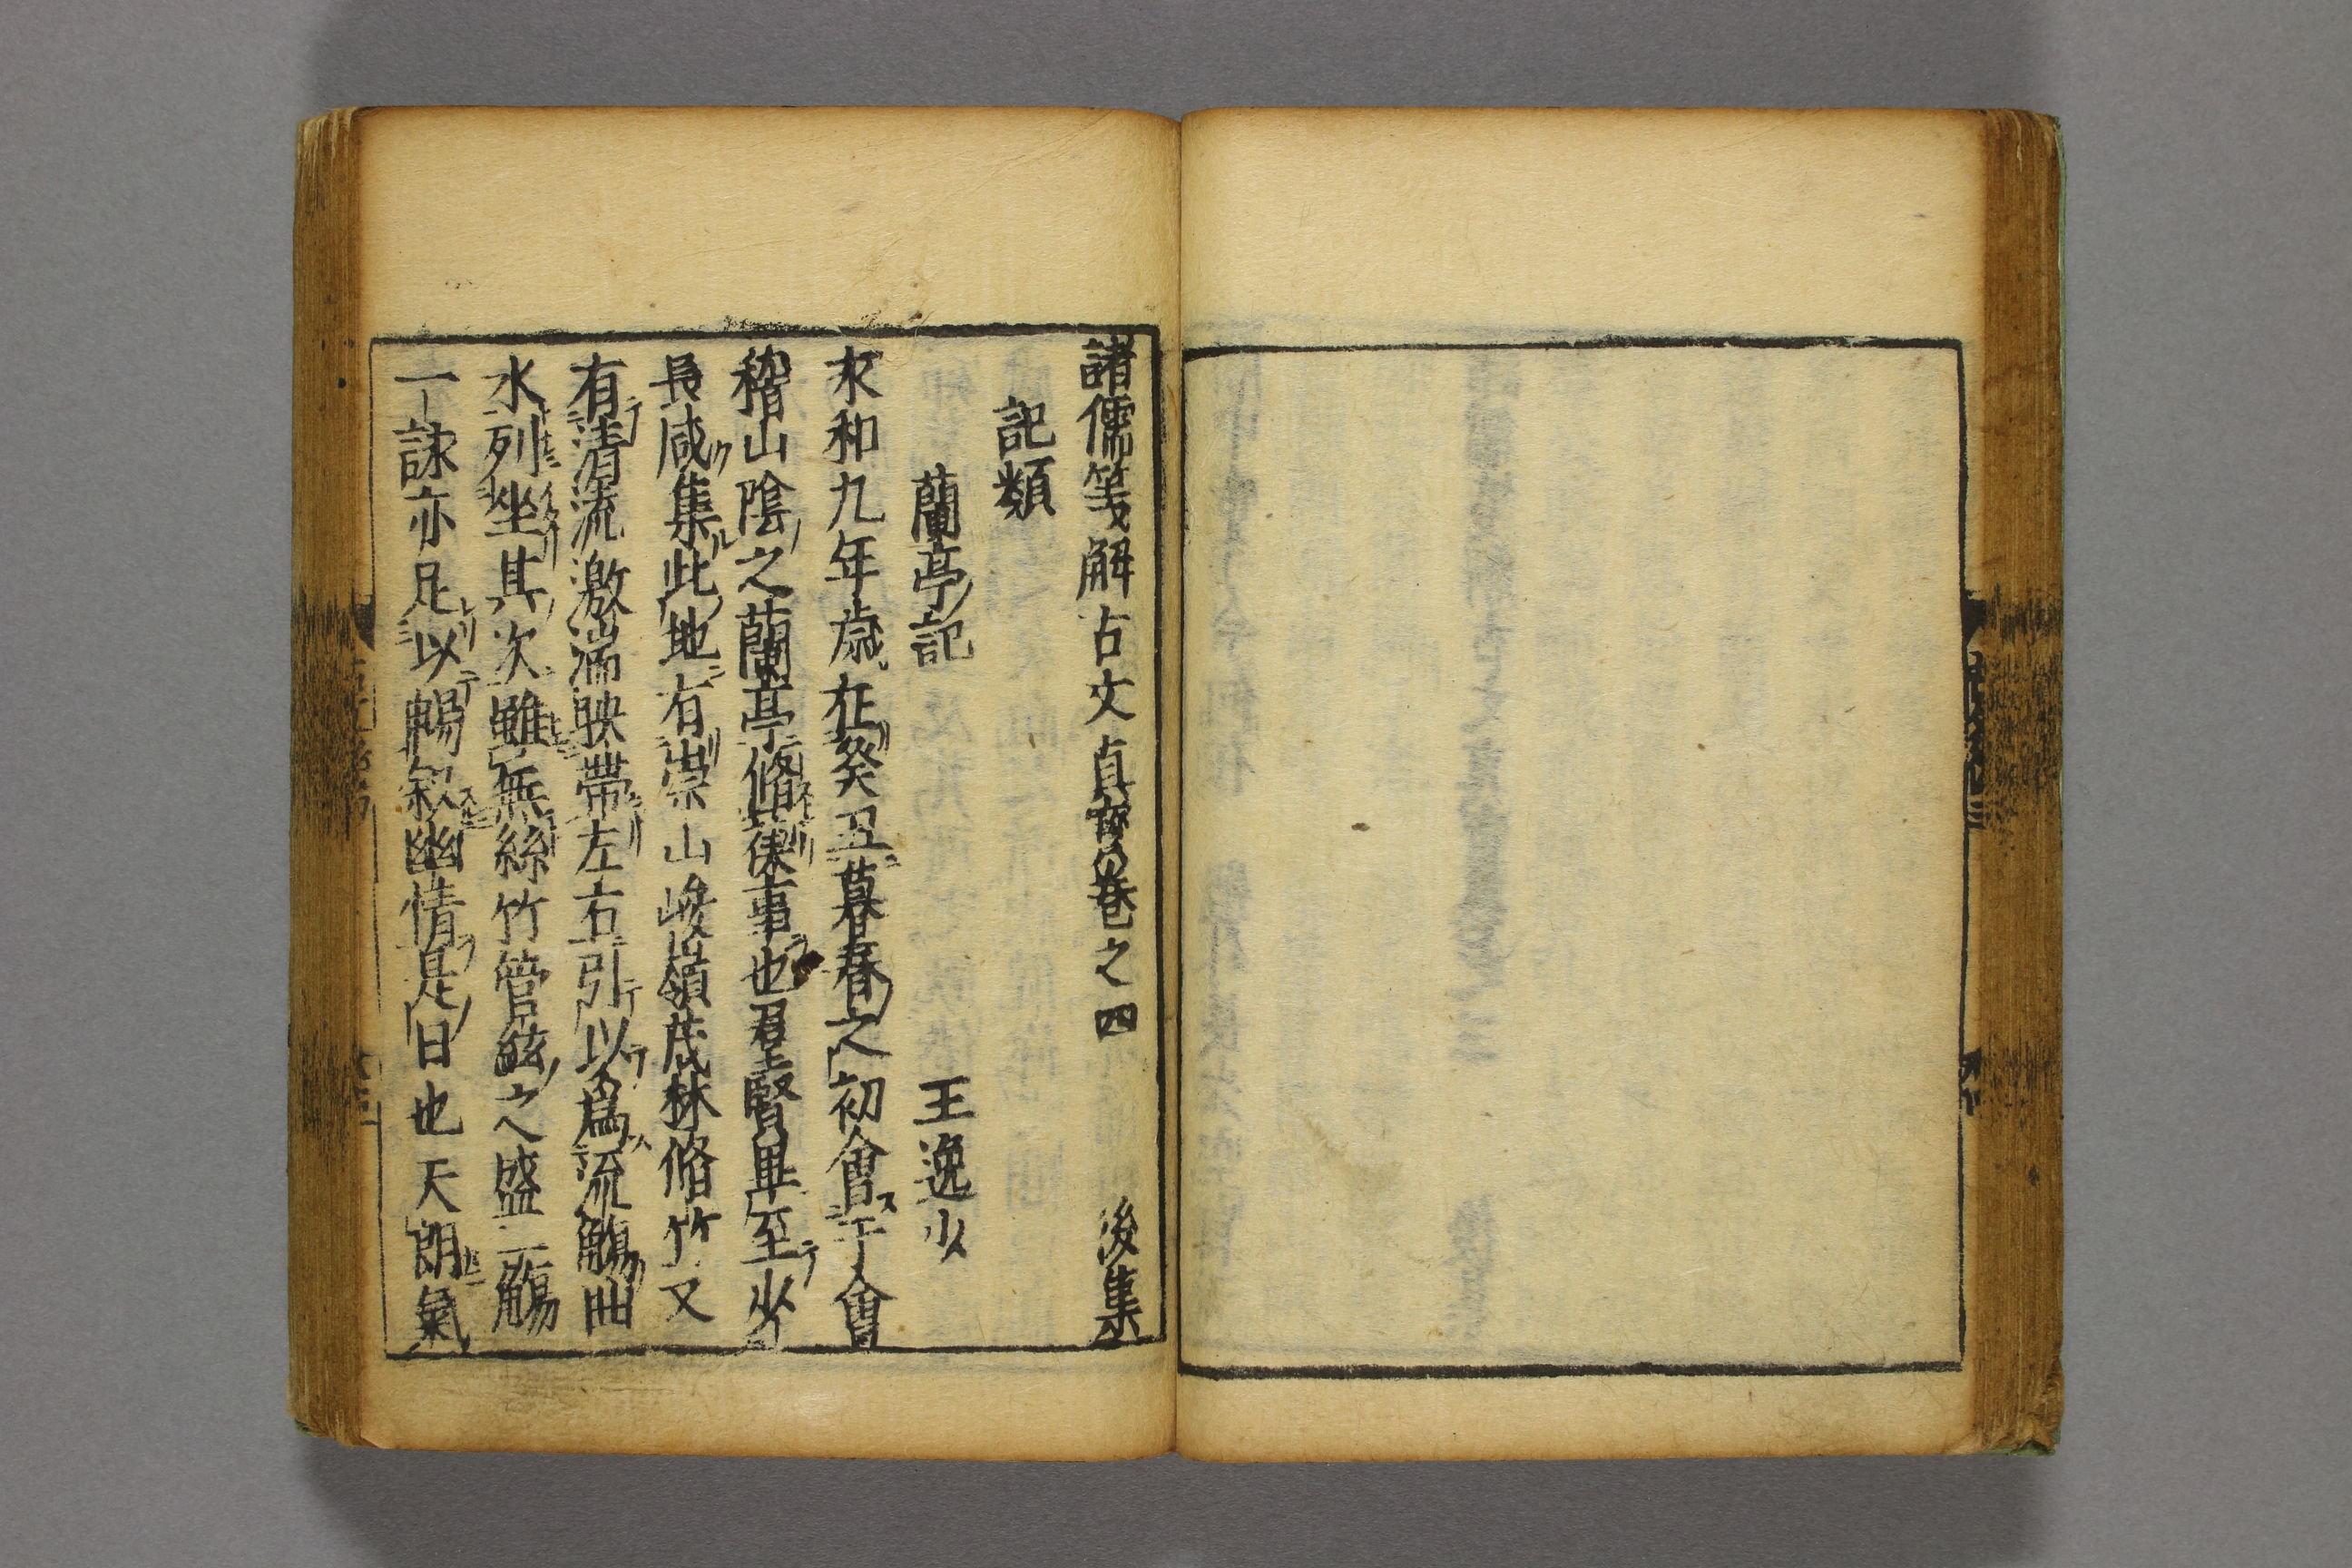 諸儒箋解古文真寳卷之四 後集
記類
蘭亭記 王逸少
永和九年歳在癸丑暮春之初會于會
稽山陰之蘭亭脩禊事也羣賢畢至少
長咸集此地有崇山峻嶺茂林脩竹又
有清流激湍映帶左右引以爲流觴曲
水列坐其次雖無絲竹管絃之盛一觴
一詠亦足以暢叙幽情是日也天朗氣